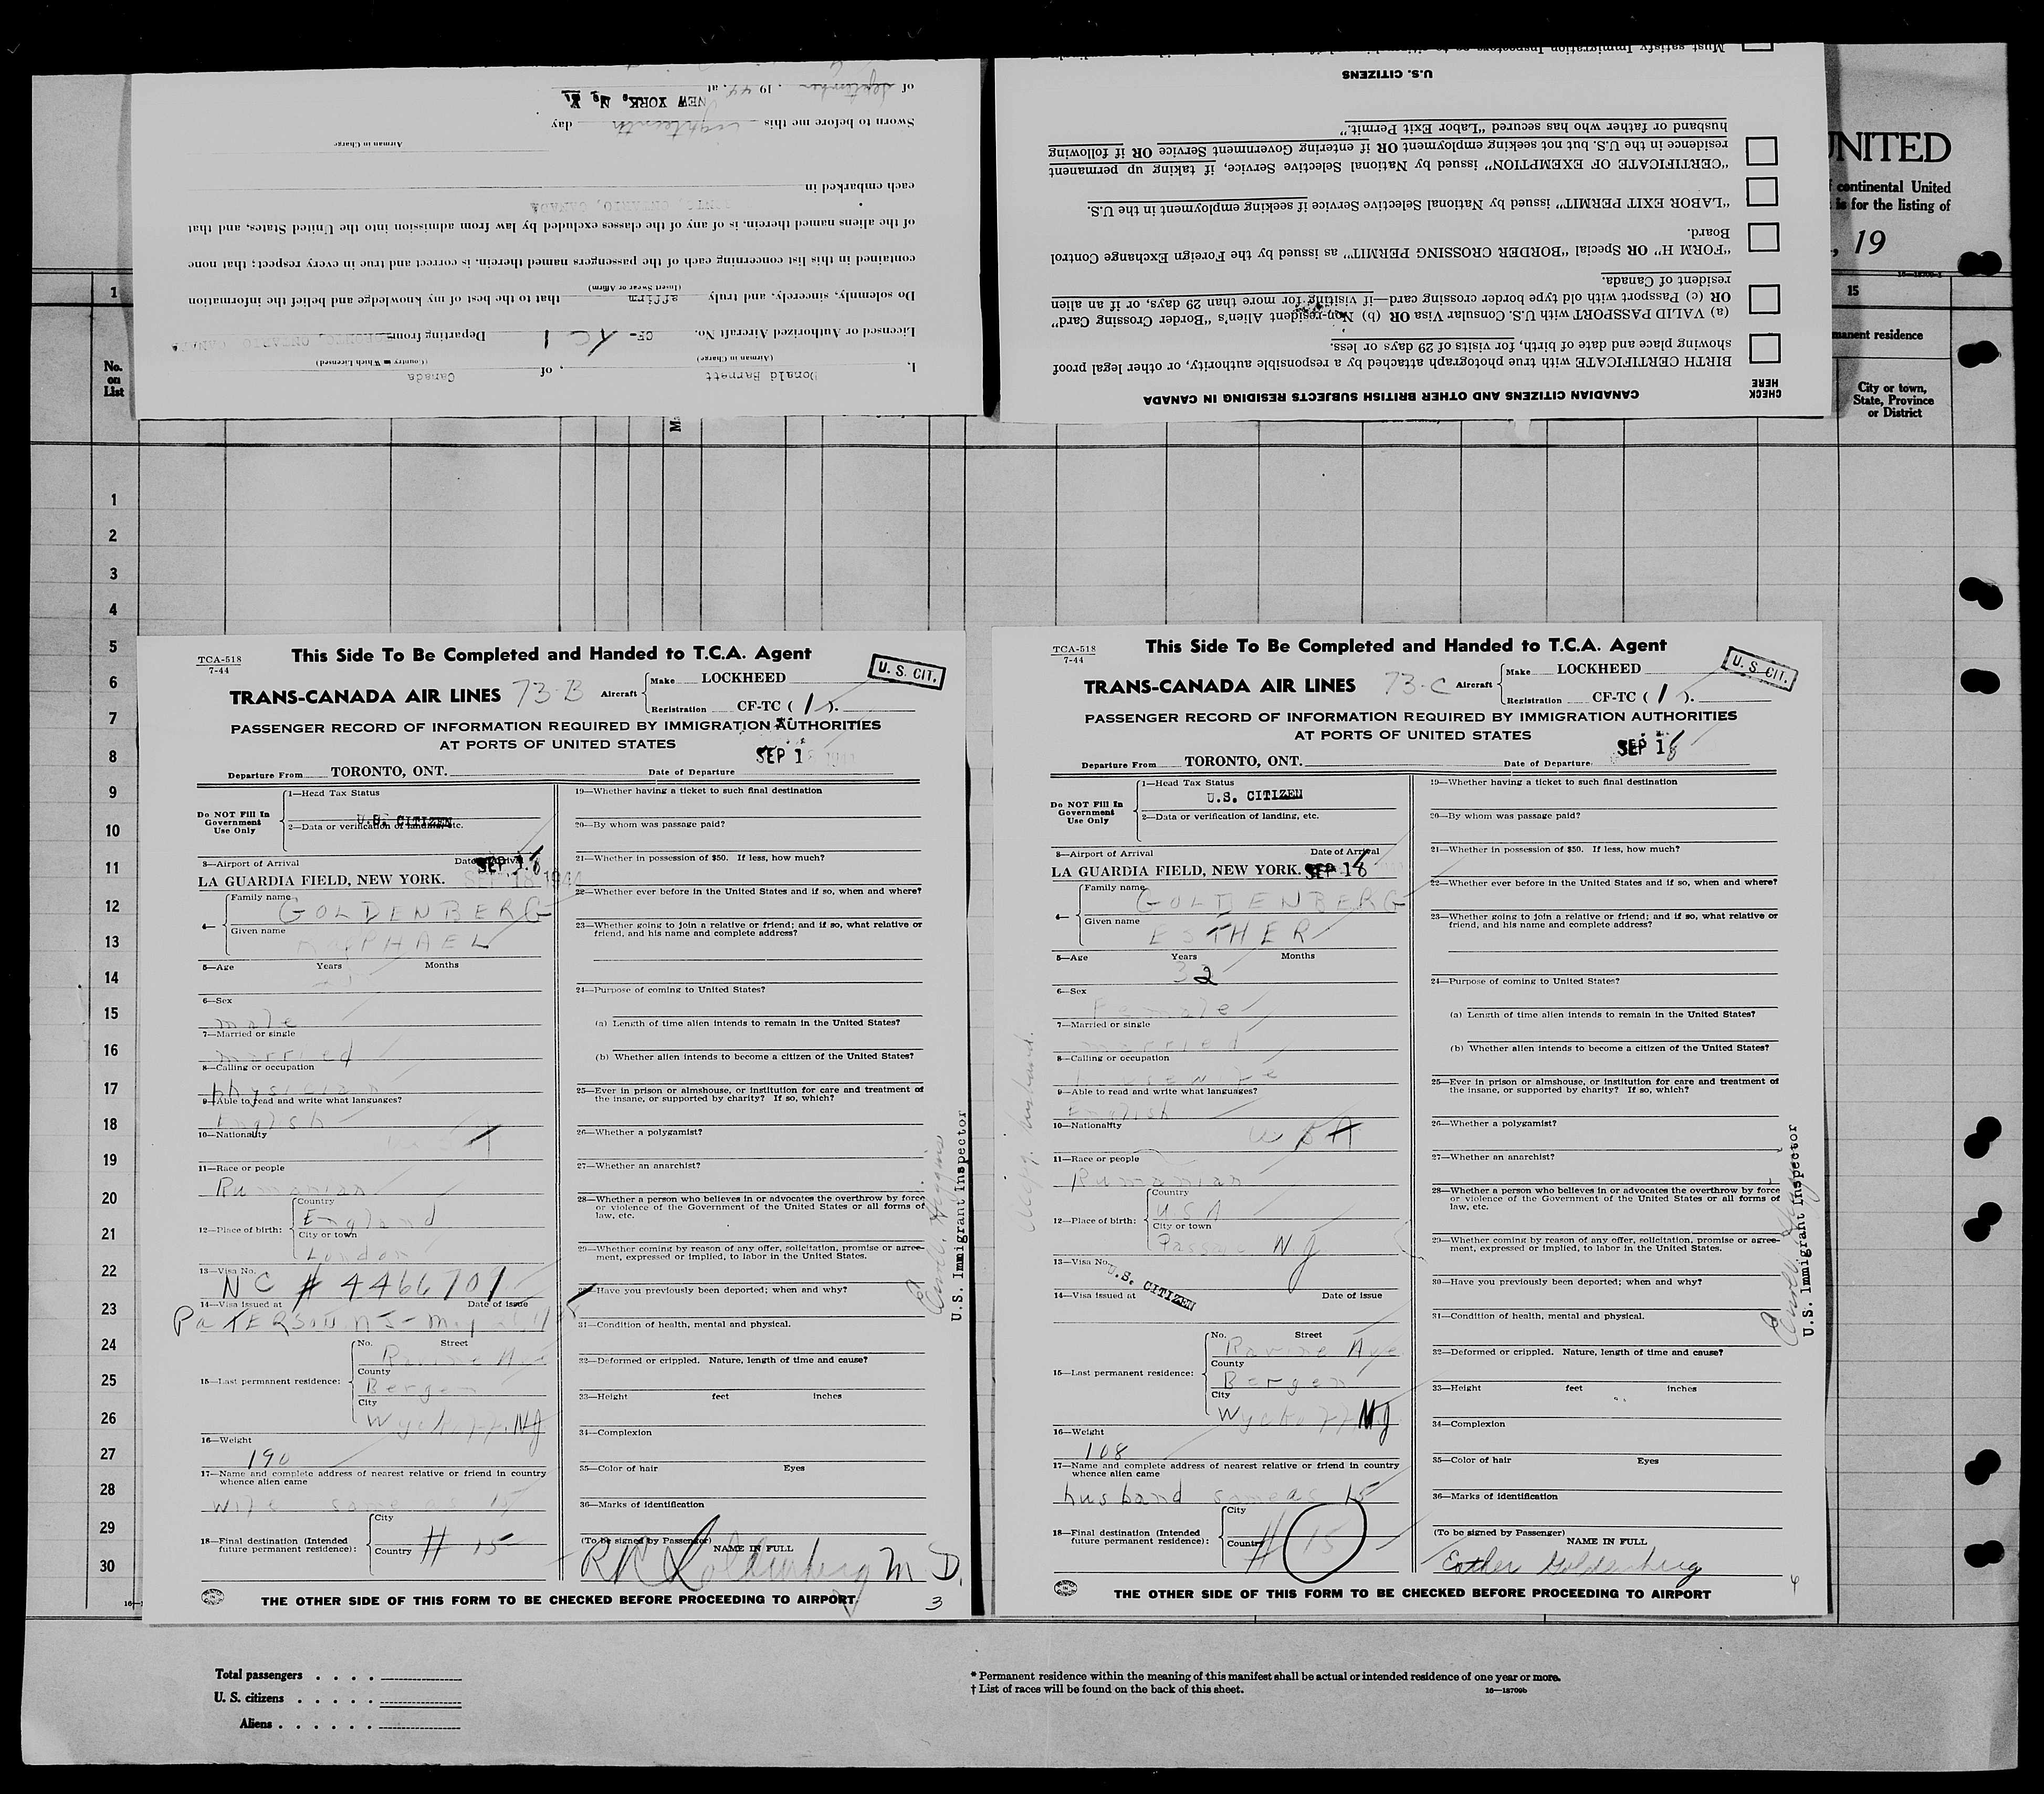 of September, 1944, at
NEW YORK, N. Y.
Sworn to before me this eighteenth day
Airman in Charge
each embarked in
ONTARIO, CANADA
of the aliens named therein, is of any of the classes excluded by law from admission into the United States, and that
contained in this list concerning each of the passengers named therein, is correct and true in every respect; that none
(Insert Swear or Affirm)
Do solemnly, sincerely, and truly affirm that to the best of my knowledge and belief the information
Licensed or Authorized Aircraft No. CF- 1 Departing from TORONTO, ONTARIO CANADA
(Airman in Charge) (Country in Which Licensed)
I, Donald Barnett, of Canada
U.S. CITIZENS
husband or father who has secured "Labor Exit Permit."
residence in the U.S. but not seeking employment OR if entering Government Service OR if following
"CERTIFICATE OF EXEMPTION" issued by National Selective Service, if taking up permanent
"LABOR EXIT PERMIT" issued by National Selective Service if seeking employment in the U.S.
Board.
"FORM H" OR Special "BORDER CROSSING PERMIT" as issued by the Foreign Exchange Control
resident of Canada.
OR (c) Passport with old type border crossing card—if visiting for more than 29 days, or if an alien
(a) VALID PASSPORT with U.S. Consular Visa OR (b) Non-resident Alien's "Border Crossing Card"
showing place and date of birth, for visits of 29 days or less.
BIRTH CERTIFICATE with true photograph attached by a responsible authority, or other legal proof
CHECK HERE
CANADIAN CITIZENS AND OTHER BRITISH SUBJECTS RESIDING IN CANADA
UNITED
continental United
is for the listing of
, 19
15
residence
City or town,
State, Province
or District
1
No.
on
List
1
2
3
4
5
6
7
8
9
10
11
12
13
14
15
16
17
18
19
20
21
22
23
24
25
26
27
28
29
30
TCA-518
7-44
This Side To Be Completed and Handed to T.C.A. Agent
U. S. CIT.
TRANS-CANADA AIR LINES 73-B
Aircraft
Make LOCKHEED
Registration CF-TC ( 1 ).
PASSENGER RECORD OF INFORMATION REQUIRED BY IMMIGRATION AUTHORITIES
AT PORTS OF UNITED STATES
SEP 18
Departure From TORONTO, ONT. Date of Departure
Do NOT Fill In
Government
Use Only
1—Head Tax Status
U.S. CITIZEN
2—Data or verification of landing, etc.
3—Airport of Arrival Date of Arrival
LA GUARDIA FIELD, NEW YORK. SEP 18 1944
4—
Family name
GOLDENBERG
Given name
RAPHAEL
5—Age Years Months
6—Sex
male
7—Married or single
married
8—Calling or occupation
physician
9—Able to read and write what languages?
English
10—Nationality
11—Race or people
Rumanian
12—Place of birth:
Country
England
City or town
London
13—Visa No.
NC # 4466707
14—Visa issued at Date of issue
PATERSON NJ - May
15—Last permanent residence:
No. Street
Ravine Ave
County
Bergen
City
Wyckoff, NJ
16—Weight
190
17—Name and complete address of nearest relative or friend in country
whence alien came
wife same as 15
18—Final destination (Intended
future permanent residence):
City
Country # 15
19—Whether having a ticket to such final destination
20—By whom was passage paid?
21—Whether in possession of $50. If less, how much?
22—Whether ever before in the United States and if so, when and where?
23—Whether going to join a relative or friend; and if so, what relative or
friend, and his name and complete address?
24—Purpose of coming to United States?
(a) Length of time alien intends to remain in the United States?
(b) Whether alien intends to become a citizen of the United States?
25—Ever in prison or almshouse, or institution for care and treatment of
the insane, or supported by charity? If so, which?
26—Whether a polygamist?
27—Whether an anarchist?
28—Whether a person who believes in or advocates the overthrow by force
or violence of the Government of the United States or all forms of
law, etc.
29—Whether coming by reason of any offer, solicitation, promise or agree-
ment, expressed or implied, to labor in the United States.
30—Have you previously been deported; when and why?
31—Condition of health, mental and physical.
32—Deformed or crippled. Nature, length of time and cause?
33—Height feet inches
34—Complexion
35—Color of hair Eyes
36—Marks of identification
(To be signed by Passenger)
NAME IN FULL
R R Goldenberg M D.
U.S. Immigrant Inspector
THE OTHER SIDE OF THIS FORM TO BE CHECKED BEFORE PROCEEDING TO AIRPORT
3
TCA-518
7-44
This Side To Be Completed and Handed to T.C.A. Agent
U. S. CIT.
TRANS-CANADA AIR LINES 73-C
Aircraft
Make LOCKHEED
Registration CF-TC ( 1 ).
PASSENGER RECORD OF INFORMATION REQUIRED BY IMMIGRATION AUTHORITIES
AT PORTS OF UNITED STATES
SEP 18
Departure From TORONTO, ONT. Date of Departure
Do NOT Fill In
Government
Use Only
1—Head Tax Status
U.S. CITIZEN
2—Data or verification of landing, etc.
3—Airport of Arrival Date of Arrival
LA GUARDIA FIELD, NEW YORK. SEP 18
4—
Family name
GOLDENBERG
Given name
ESTHER
5—Age Years Months
32
6—Sex
Female
7—Married or single
married
8—Calling or occupation
housewife
9—Able to read and write what languages?
English
10—Nationality
USA
11—Race or people
Rumanian
12—Place of birth:
Country
USA
City or town
Passaic N.J
13—Visa No.
U.S. CITIZEN
14—Visa issued at Date of issue
15—Last permanent residence:
No. Street
Ravine Ave
County
Bergen
City
Wyckoff NJ
16—Weight
108
17—Name and complete address of nearest relative or friend in country
whence alien came
husband same as 15
18—Final destination (Intended
future permanent residence):
City
Country # 15
19—Whether having a ticket to such final destination
20—By whom was passage paid?
21—Whether in possession of $50. If less, how much?
22—Whether ever before in the United States and if so, when and where?
23—Whether going to join a relative or friend; and if so, what relative or
friend, and his name and complete address?
24—Purpose of coming to United States?
(a) Length of time alien intends to remain in the United States?
(b) Whether alien intends to become a citizen of the United States?
25—Ever in prison or almshouse, or institution for care and treatment of
the insane, or supported by charity? If so, which?
26—Whether a polygamist?
27—Whether an anarchist?
28—Whether a person who believes in or advocates the overthrow by force
or violence of the Government of the United States or all forms of
law, etc.
29—Whether coming by reason of any offer, solicitation, promise or agree-
ment, expressed or implied, to labor in the United States.
30—Have you previously been deported; when and why?
31—Condition of health, mental and physical.
32—Deformed or crippled. Nature, length of time and cause?
33—Height feet inches
34—Complexion
35—Color of hair Eyes
36—Marks of identification
(To be signed by Passenger)
NAME IN FULL
Esther Goldenberg
U.S. Immigrant Inspector
THE OTHER SIDE OF THIS FORM TO BE CHECKED BEFORE PROCEEDING TO AIRPORT
4
Total passengers . . . .
U. S. citizens . . . . .
Aliens . . . . . .
* Permanent residence within the meaning of this manifest shall be actual or intended residence of one year or more.
† List of races will be found on the back of this sheet.
16—18709b